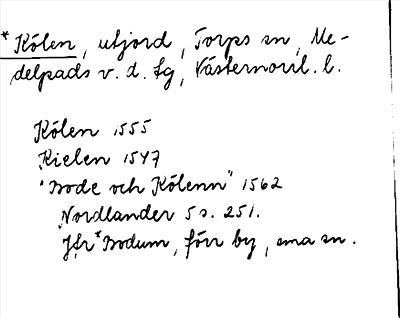 *Kölen, utjord, Torps sn, Me-
delpads v. d. sg, Västernorrl. l.
Kölen 1555
Kielen 1547
"Bode och Kölenn" 1562
Nordlander 5 s. 251.
Jfr *Bodum, förr by, sma sn.